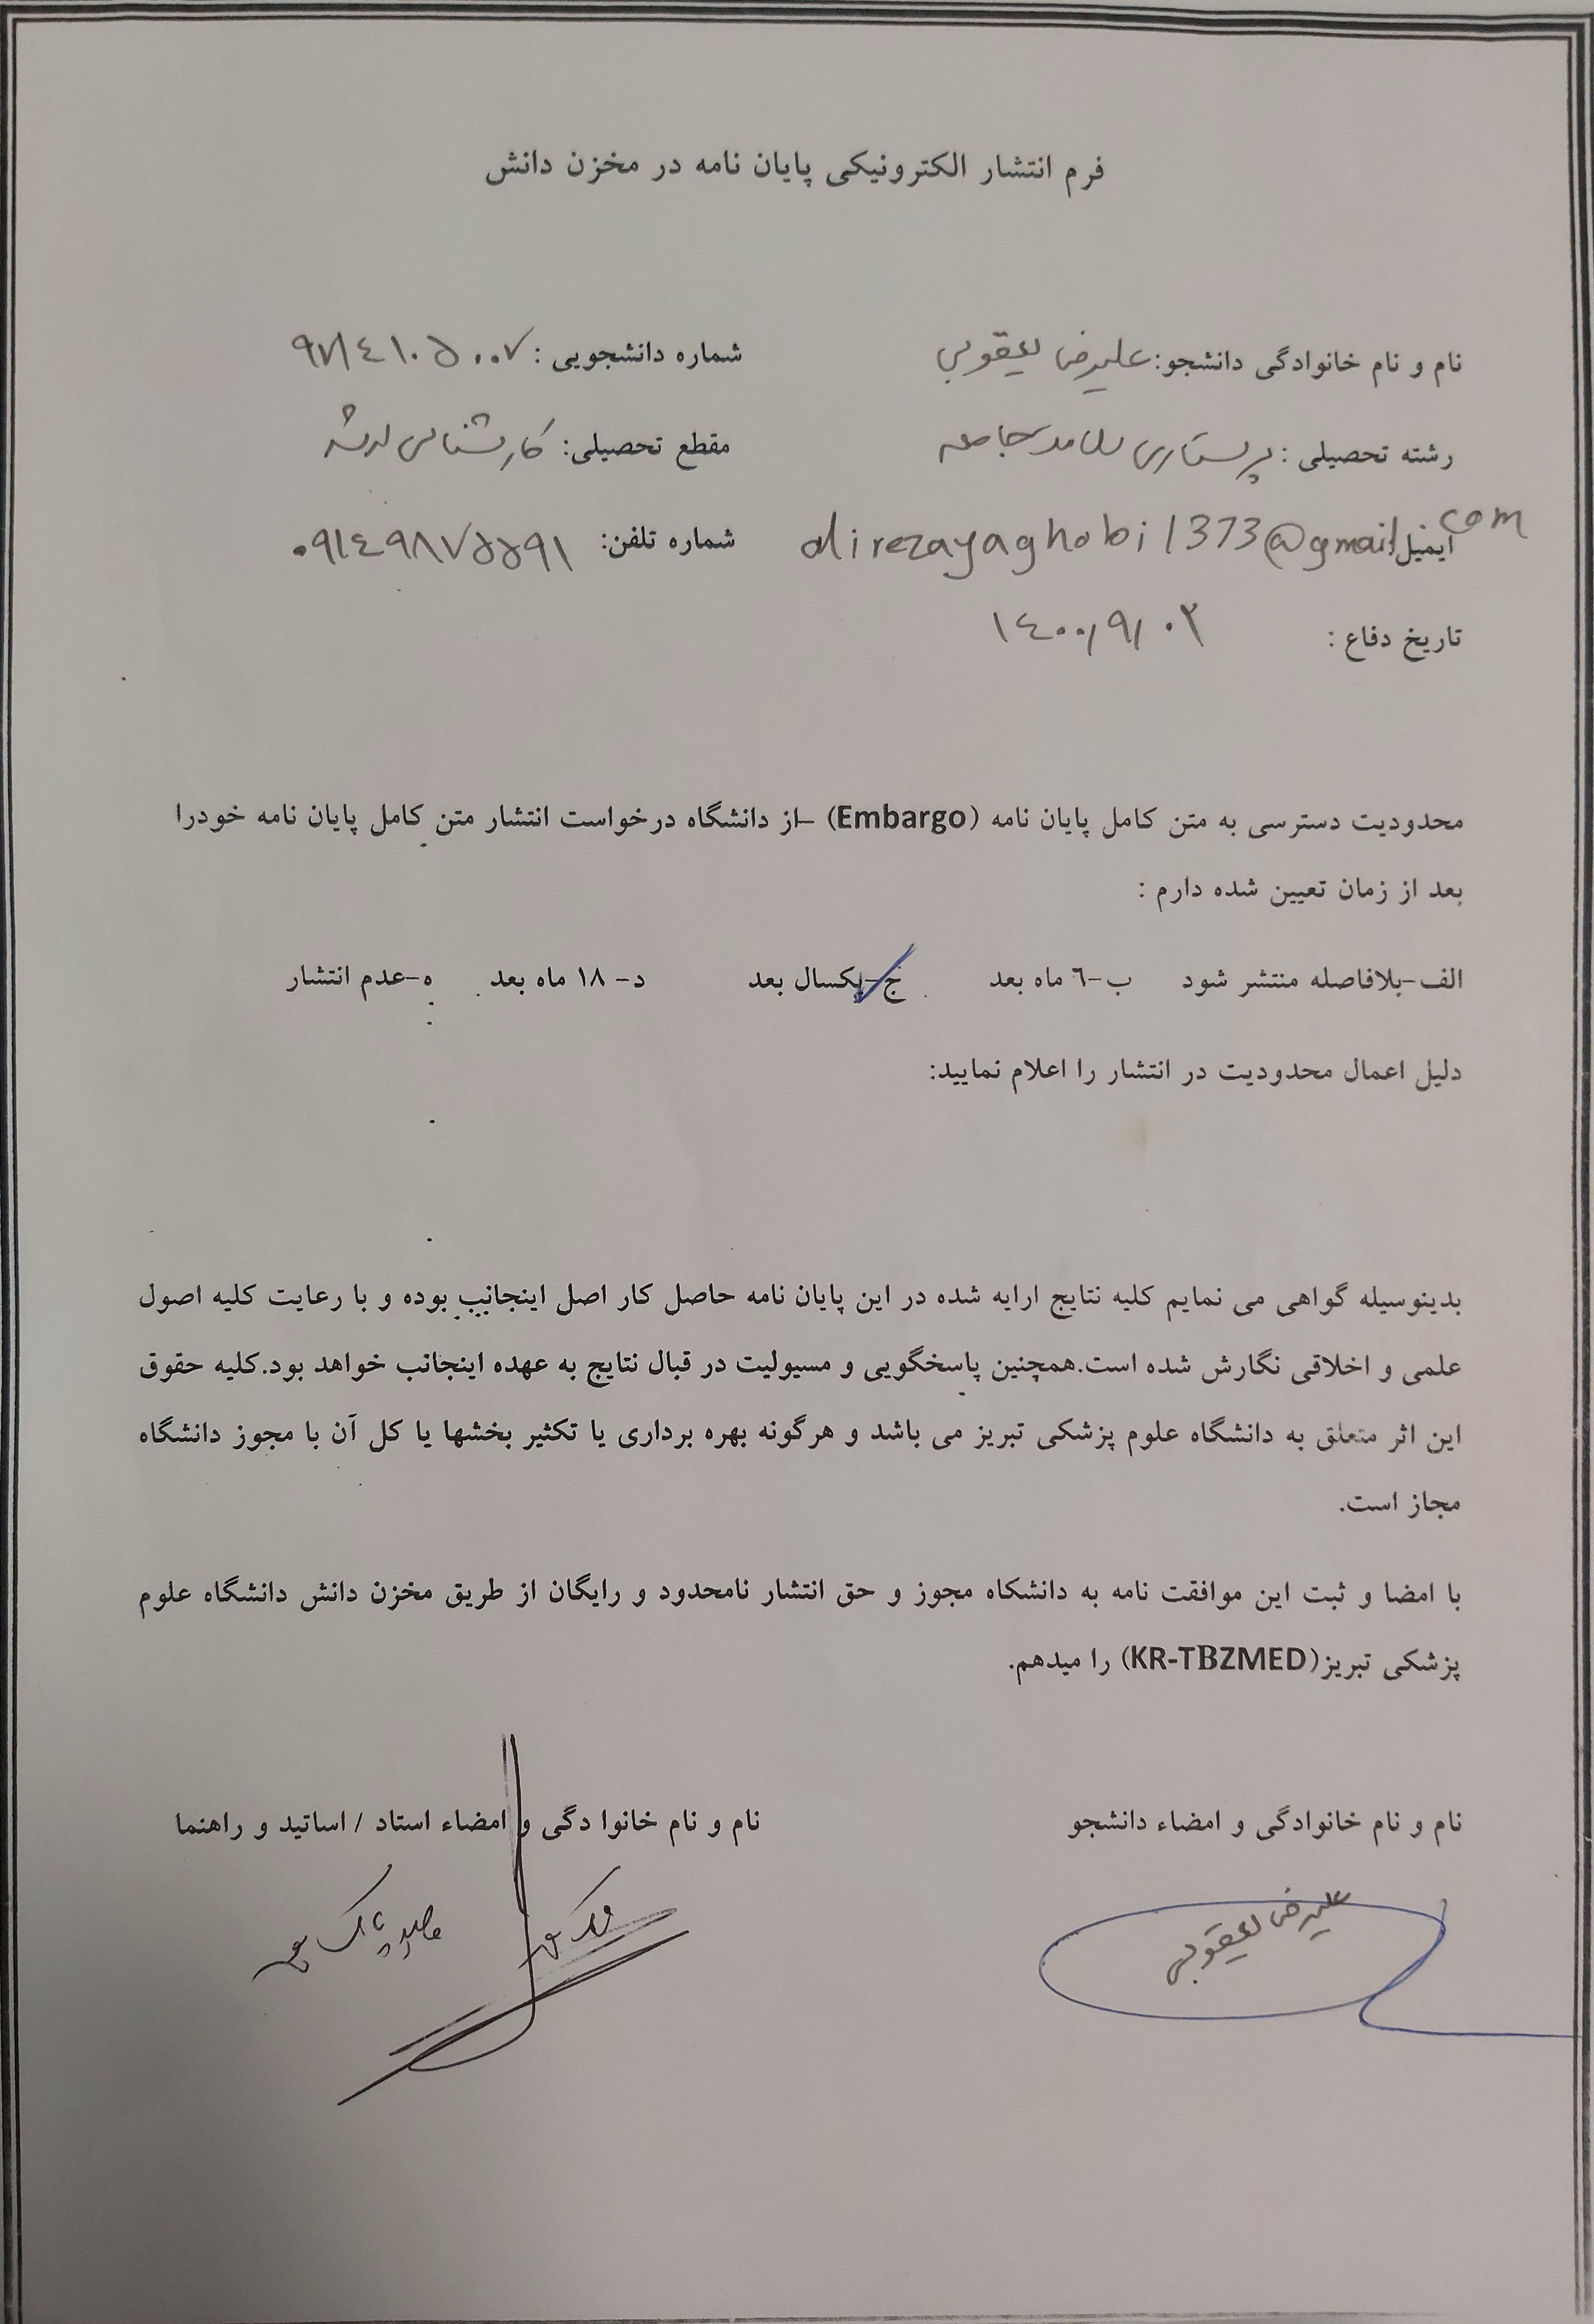 فرم انتشار الکترونیکی پایان نامه در مخزن دانش
نام و نام خانوادگی دانشجو: علیرضا یعقوبی شماره دانشجویی: ۹۷۱٤۱۰۵۰۰۷
رشته تحصیلی: پرستاری سلامت جامعه مقطع تحصیلی: کارشناسی ارشد
ایمیل: alirezayaghobi1373@gmail.com شماره تلفن: ۰۹۱٤۹۸۷۵۵۹۱
تاریخ دفاع: ۱٤۰۰/۹/۰۲
محدودیت دسترسی به متن کامل پایان نامه (Embargo) –از دانشگاه درخواست انتشار متن کامل پایان نامه خودرا
بعد از زمان تعیین شده دارم :
الف-بلافاصله منتشر شود ب-٦ ماه بعد ج-یکسال بعد د- ۱۸ ماه بعد ه-عدم انتشار
دلیل اعمال محدودیت در انتشار را اعلام نمایید:
بدینوسیله گواهی می نمایم کلیه نتایج ارایه شده در این پایان نامه حاصل کار اصل اینجانب بوده و با رعایت کلیه اصول
علمی و اخلاقی نگارش شده است.همچنین پاسخگویی و مسیولیت در قبال نتایج به عهده اینجانب خواهد بود.کلیه حقوق
این اثر متعلق به دانشگاه علوم پزشکی تبریز می باشد و هرگونه بهره برداری یا تکثیر بخشها یا کل آن با مجوز دانشگاه
مجاز است.
با امضا و ثبت این موافقت نامه به دانشکاه مجوز و حق انتشار نامحدود و رایگان از طریق مخزن دانش دانشگاه علوم
پزشکی تبریز(KR-TBZMED) را میدهم.
نام و نام خانوادگی و امضاء دانشجو نام و نام خانوا دگی و امضاء استاد / اساتید و راهنما
علیرضا یعقوبی